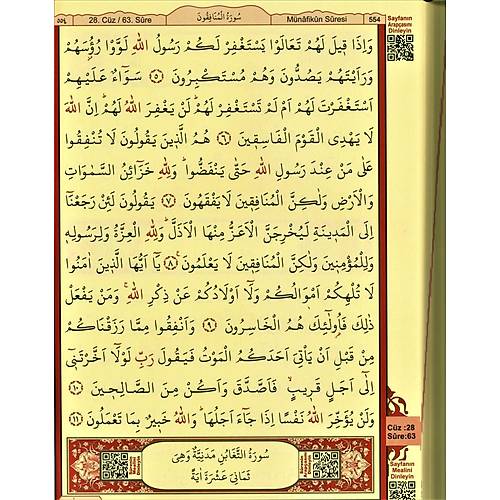 ٥٥٤
28. Cüz / 63. Sûre
سُورَةُ الْمُنَافِقُونَ
Münâfikûn Sûresi
554
Sayfanın
Arapçasını
Dinleyin
وَاِذَا قٖيلَ لَهُمْ تَعَالَوْا يَسْتَغْفِرْ لَكُمْ رَسُولُ اللّٰهِ لَوَّوْا رُؤُ۫سَهُمْ
وَرَاَيْتَهُمْ يَصُدُّونَ وَهُمْ مُسْتَكْبِرُونَ ﴿٥﴾ سَوَٓاءٌ عَلَيْهِمْ
اَسْتَغْفَرْتَ لَهُمْ اَمْ لَمْ تَسْتَغْفِرْ لَهُمْؕ لَنْ يَغْفِرَ اللّٰهُ لَهُمْؕ اِنَّ اللّٰهَ
لَا يَهْدِى الْقَوْمَ الْفَاسِقٖينَ ﴿٦﴾ هُمُ الَّذٖينَ يَقُولُونَ لَا تُنْفِقُوا
عَلٰى مَنْ عِنْدَ رَسُولِ اللّٰهِ حَتّٰى يَنْفَضُّواؕ وَلِلّٰهِ خَزَٓائِنُ السَّمٰوَاتِ
وَالْاَرْضِ وَلٰكِنَّ الْمُنَافِقٖينَ لَا يَفْقَهُونَ ﴿٧﴾ يَقُولُونَ لَئِنْ رَجَعْنَٓا
اِلَى الْمَدٖينَةِ لَيُخْرِجَنَّ الْاَعَزُّ مِنْهَا الْاَذَلَّؕ وَلِلّٰهِ الْعِزَّةُ وَلِرَسُولِهٖ
وَلِلْمُؤْمِنٖينَ وَلٰكِنَّ الْمُنَافِقٖينَ لَا يَعْلَمُونَ ﴿٨﴾ يَٓا اَيُّهَا الَّذٖينَ اٰمَنُوا
لَا تُلْهِكُمْ اَمْوَالُكُمْ وَلَٓا اَوْلَادُكُمْ عَنْ ذِكْرِ اللّٰهِۚ وَمَنْ يَفْعَلْ
ذٰلِكَ فَاُولٰٓئِكَ هُمُ الْخَاسِرُونَ ﴿٩﴾ وَاَنْفِقُوا مِمَّا رَزَقْنَاكُمْ
مِنْ قَبْلِ اَنْ يَاْتِىَ اَحَدَكُمُ الْمَوْتُ فَيَقُولَ رَبِّ لَوْلَٓا اَخَّرْتَنٖٓى
اِلٰٓى اَجَلٍ قَرٖيبٍۙ فَاَصَّدَّقَ وَاَكُنْ مِنَ الصَّالِحٖينَ ﴿١٠﴾
وَلَنْ يُؤَخِّرَ اللّٰهُ نَفْسًا اِذَا جَٓاءَ اَجَلُهَاؕ وَاللّٰهُ خَبٖيرٌ بِمَا تَعْمَلُونَ ﴿١١﴾
Cüz :28
Sûre:63
سُورَةُ التَّغَابُنِ مَدَنِيَّةٌ وَهِىَ
ثَمَانِىَ عَشْرَةَ اٰيَةً
Sayfanın
Mealini
Dinleyin